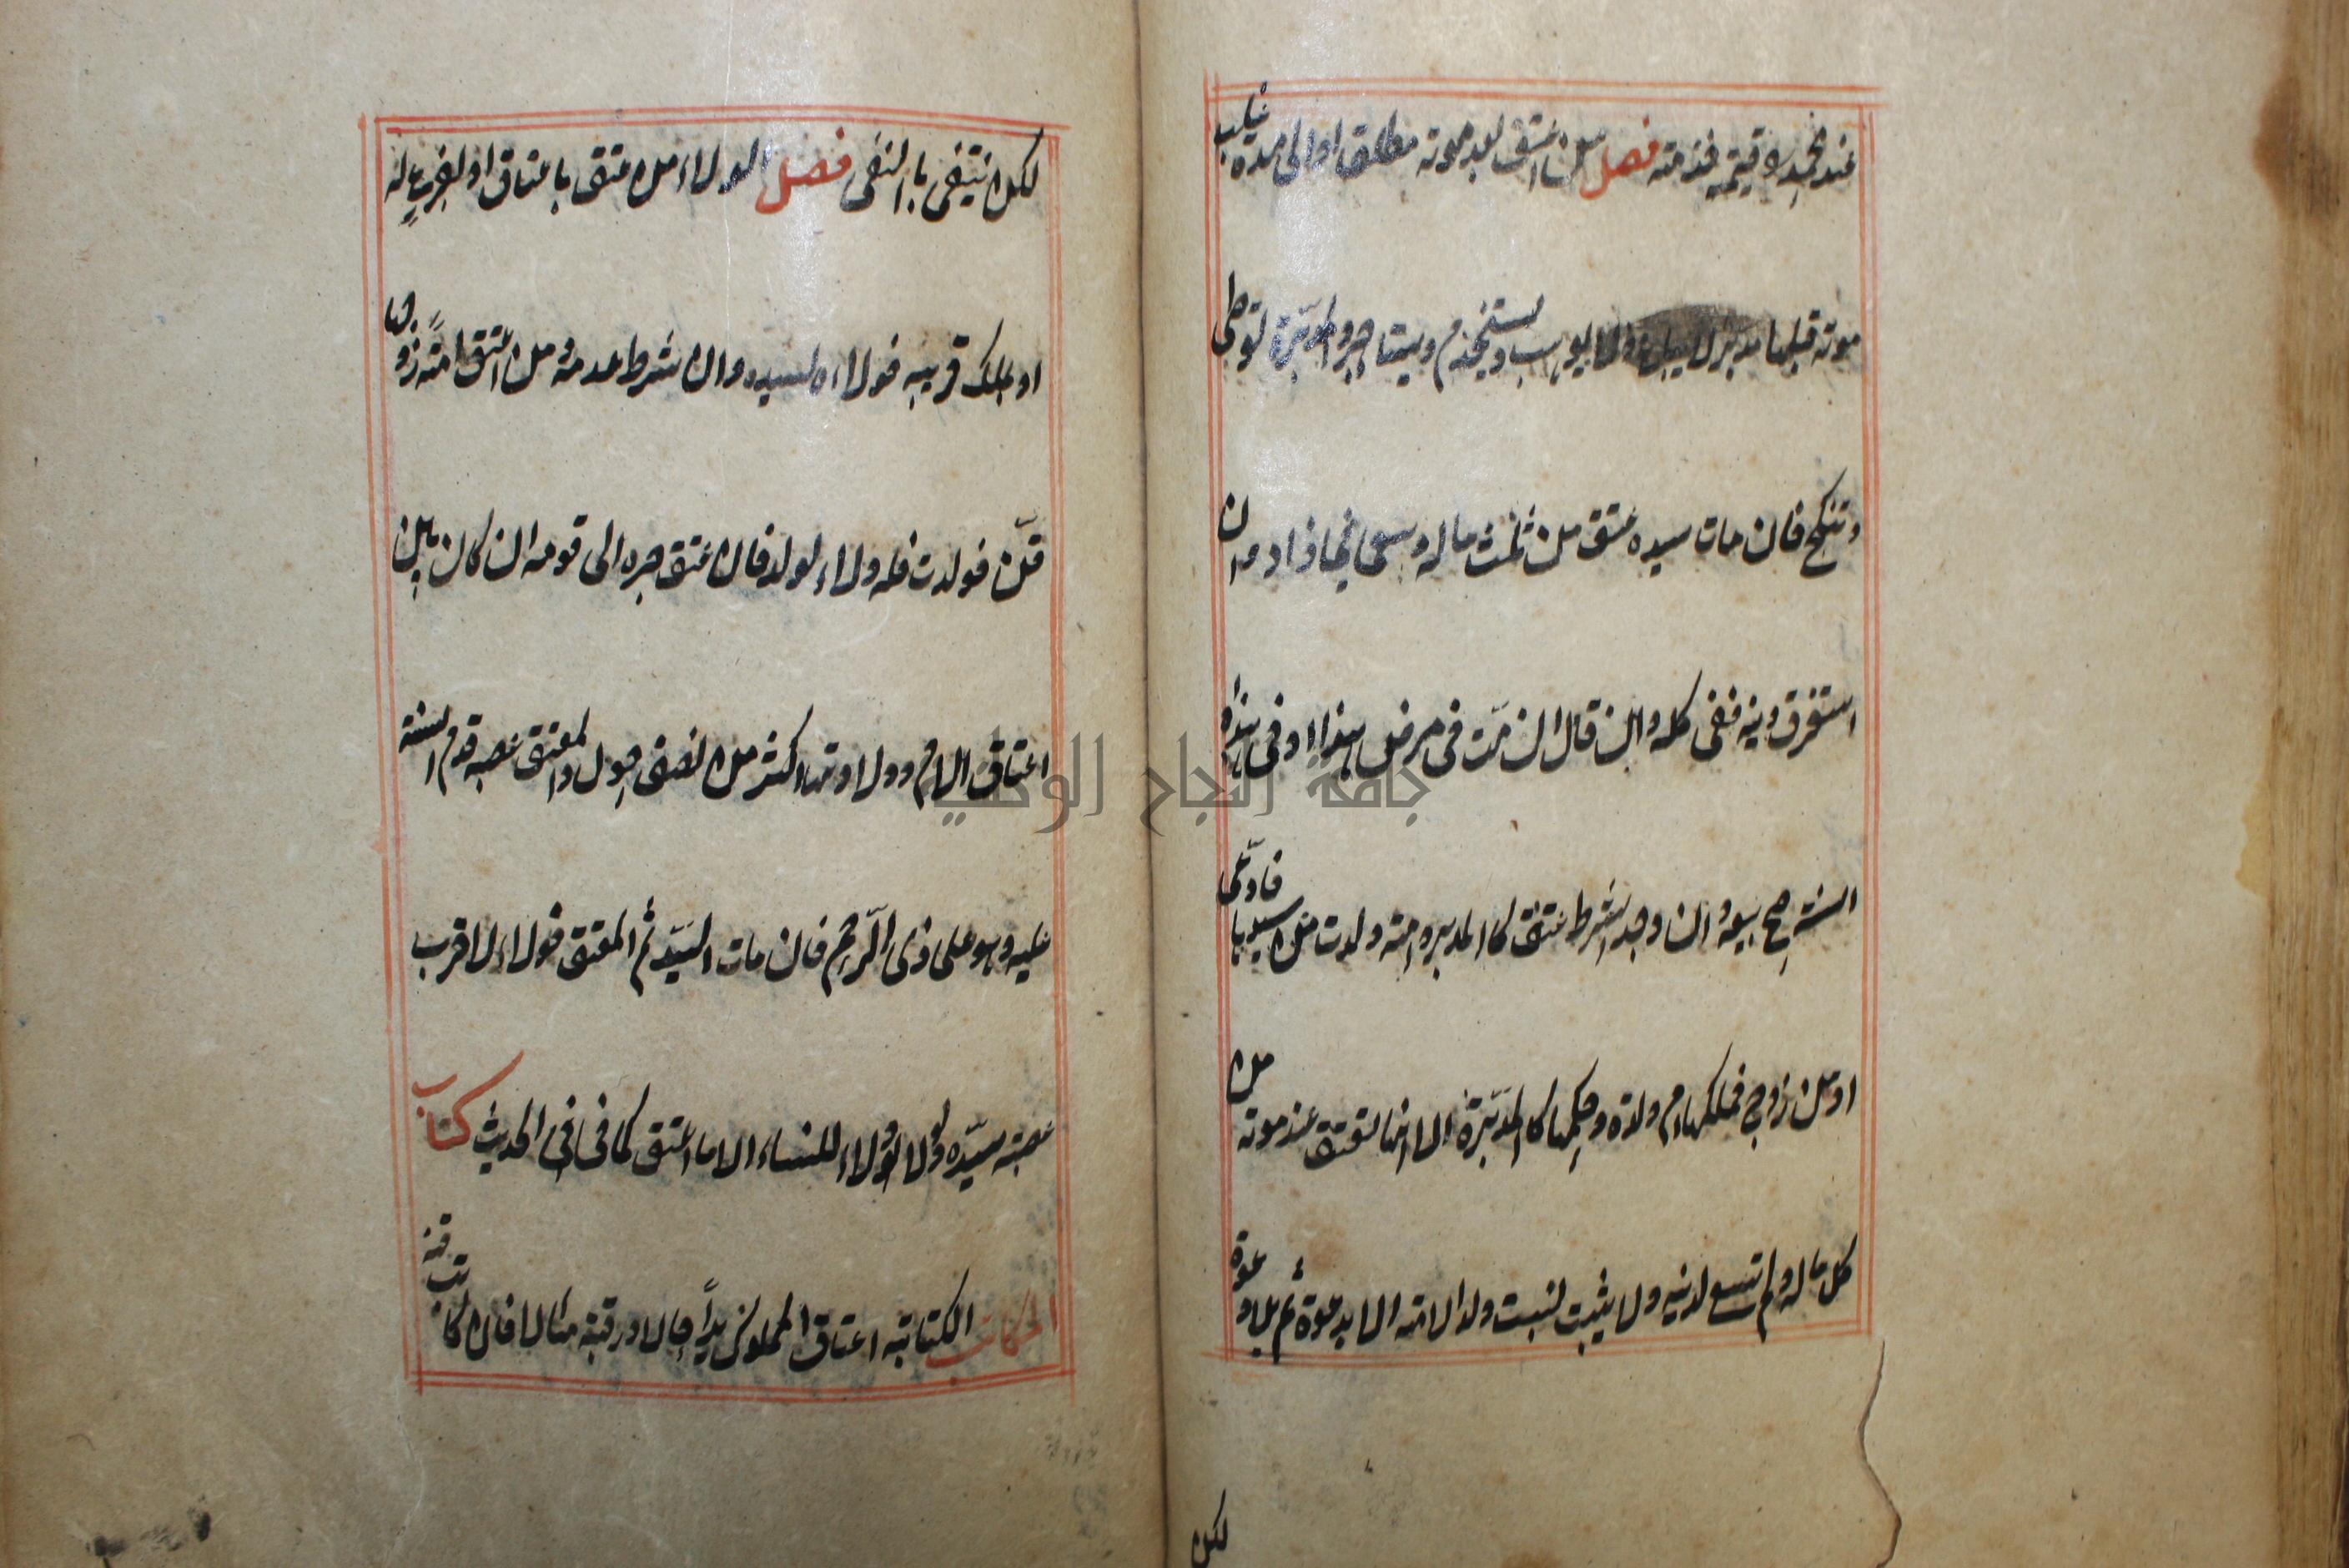 عند محمد وقيمة فذمته فصل من اعتق بعد موته مطلقا او الى مدة غلب
موته قبلها مدبر لا يباع ولا يوهب ويستخدم ويستاجر والمدبرة توطى
وتنكح فان مات سيده عتق من ثلث ماله وسعى فيما زاد وان
استغرق دينه ففى كله وان قال ان مت فى مرض هذا او فى هذه
السنة صح بيعه وان وجد الشرط عتق كالمدبر امة ولدت من سيدها فادعى
او من زوج فملكها ام ولده وحكمها كالمدبرة الا انها تعتق عند موته من
كل ماله ولم تسع لدينه ولا يثبت نسب ولد الامة الا بدعوة ثم بلا دعوة
لكن
لكن ينتفى بالنفى فصل الولاء من عتق باعتاق او بفرع له
او بملك قريبه فولاءه لسيده وان شرط عدمه ومن اعتق امته زوجها
قن فولدت فله ولاء لولد فان عتق جره الى قومه ان كان بين
اعتاق الام وولادتها اكثر من نصف حول والمعتق عصبة قدم النسبية
عليه وهو على ذى الرحم فان مات السيد ثم المعتق فولاءه لاقرب
عصبة سيده ولا ولاء للنساء الا ما اعتق كما فى الحديث كتاب
المكاتب الكتابة اعتاق المملوك يدا حالا ورقبة مآلا فان كاتب قنه
جامعة النجاح الوطنية